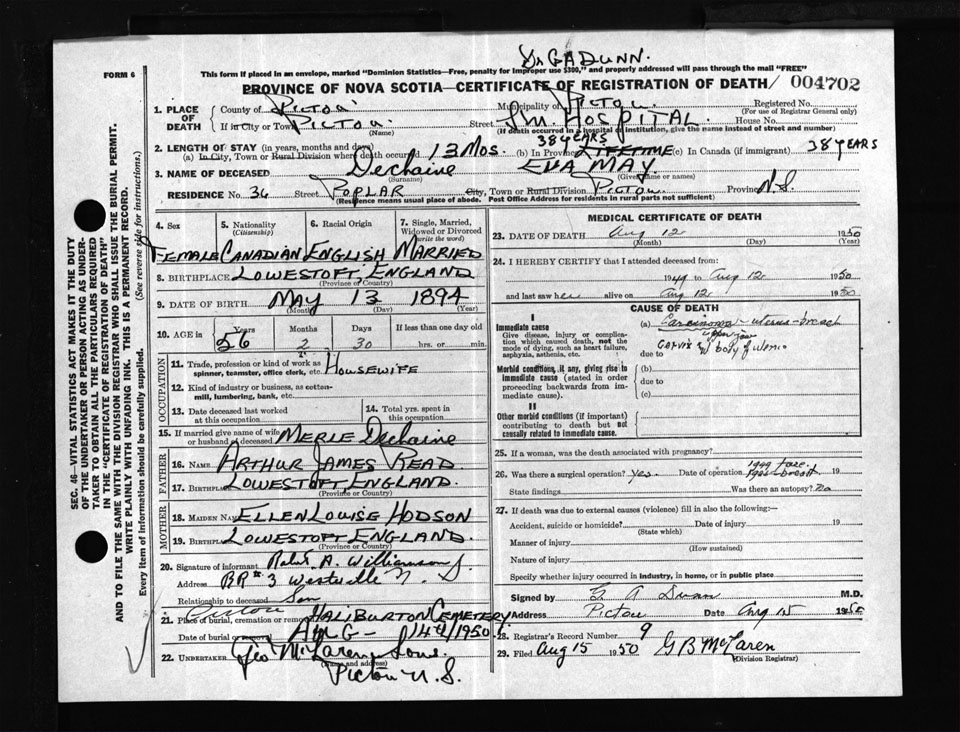 Dr GA DUNN.
FORM 6
This form if placed in an envelope, marked "Dominion Statistics—Free, penalty for improper use $300," and properly addressed will pass through the mail "FREE"
PROVINCE OF NOVA SCOTIA—CERTIFICATE OF REGISTRATION OF DEATH/ 004702
1. PLACE OF DEATH { County of PICTOU Municipality of PICTOU Registered No.
(For use of Registrar General only)
If in City or Town PICTOU Street HOSPITAL House No.
(Name) (If death occurred in a hospital or institution, give the name instead of street and number)
2. LENGTH OF STAY (in years, months and days) 38 YEARS
(a) In City, Town or Rural Division where death occurred 13 MOS. (b) In Province LIFETIME (c) In Canada (if immigrant) 38 YEARS
3. NAME OF DECEASED Dechaine EVA MAY
(Surname) (Given name or names)
RESIDENCE No. 36 Street POPLAR City, Town or Rural Division PICTOU Province N.S.
(Residence means usual place of abode. Post Office Address for residents in rural parts not sufficient)
4. Sex 5. Nationality (Citizenship) 6. Racial Origin 7. Single, Married, Widowed or Divorced (write the word)
FEMALE CANADIAN ENGLISH MARRIED
8. BIRTHPLACE LOWESTOFT, ENGLAND
(Province or Country)
9. DATE OF BIRTH MAY 13 1894
(Month) (Day) (Year)
10. AGE in { Years Months Days If less than one day old
56 2 30 hrs. or min.
OCCUPATION
11. Trade, profession or kind of work as spinner, teamster, office clerk, etc. HOUSEWIFE
12. Kind of industry or business, as cotton-mill, lumbering, bank, etc.
13. Date deceased last worked at this occupation
14. Total yrs. spent in this occupation
15. If married give name of wife or husband of deceased MERLE Dechaine
FATHER
16. NAME ARTHUR JAMES READ
17. Birthplace LOWESTOFT, ENGLAND.
(Province or Country)
MOTHER
18. MAIDEN NAME ELLEN LOUISE HODSON
19. Birthplace LOWESTOFT ENGLAND.
(Province or Country)
20. Signature of informant Robt. A. Williamson
Address RR # 3 Westville N. S.
Relationship to deceased Son
Pictou
21. Place of burial, cremation or removal HALIBURTON CEMETERY
Date of burial or removal AUG— 14th/1950
22. UNDERTAKER Geo McLaren Sons.
(Name and address)
Pictou N.S.
MEDICAL CERTIFICATE OF DEATH
23. DATE OF DEATH Aug 12 1950
(Month) (Day) (Year)
24. I HEREBY CERTIFY that I attended deceased from:
1949 to Aug 12 1950
and last saw her alive on Aug 12 1950
CAUSE OF DEATH
I
Immediate cause (a) Carcinoma—uterus—breast
Give disease, injury or complication which caused death, not the mode of dying, such as heart failure, asphyxia, asthenia, etc.
due to cervix & body of uterus
Morbid conditions, if any, giving rise to immediate cause (stated in order proceeding backwards from immediate cause).
(b)
due to
(c)
II
Other morbid conditions (if important) contributing to death but not causally related to immediate cause.
25. If a woman, was the death associated with pregnancy?
26. Was there a surgical operation? yes. Date of operation 19
State findings Was there an autopsy? no
27. If death was due to external causes (violence) fill in also the following:—
Accident, suicide or homicide? Date of injury 19
(State which)
Manner of injury
(How sustained)
Nature of injury
Specify whether injury occurred in industry, in home, or in public place
Signed by G A Dunn M.D.
Address Pictou Date Aug 15 1950
28. Registrar's Record Number 9
29. Filed Aug 15 1950 G B McLaren
(Division Registrar)
SEC. 46—VITAL STATISTICS ACT MAKES IT THE DUTY
OF THE UNDERTAKER OR PERSON ACTING AS UNDER-
TAKER TO OBTAIN ALL THE PARTICULARS REQUIRED
IN THE "CERTIFICATE OF REGISTRATION OF DEATH"
AND TO FILE THE SAME WITH THE DIVISION REGISTRAR WHO SHALL ISSUE THE BURIAL PERMIT.
WRITE PLAINLY WITH UNFADING INK. THIS IS A PERMANENT RECORD.
Every item of information should be carefully supplied. (See reverse side for instructions.)